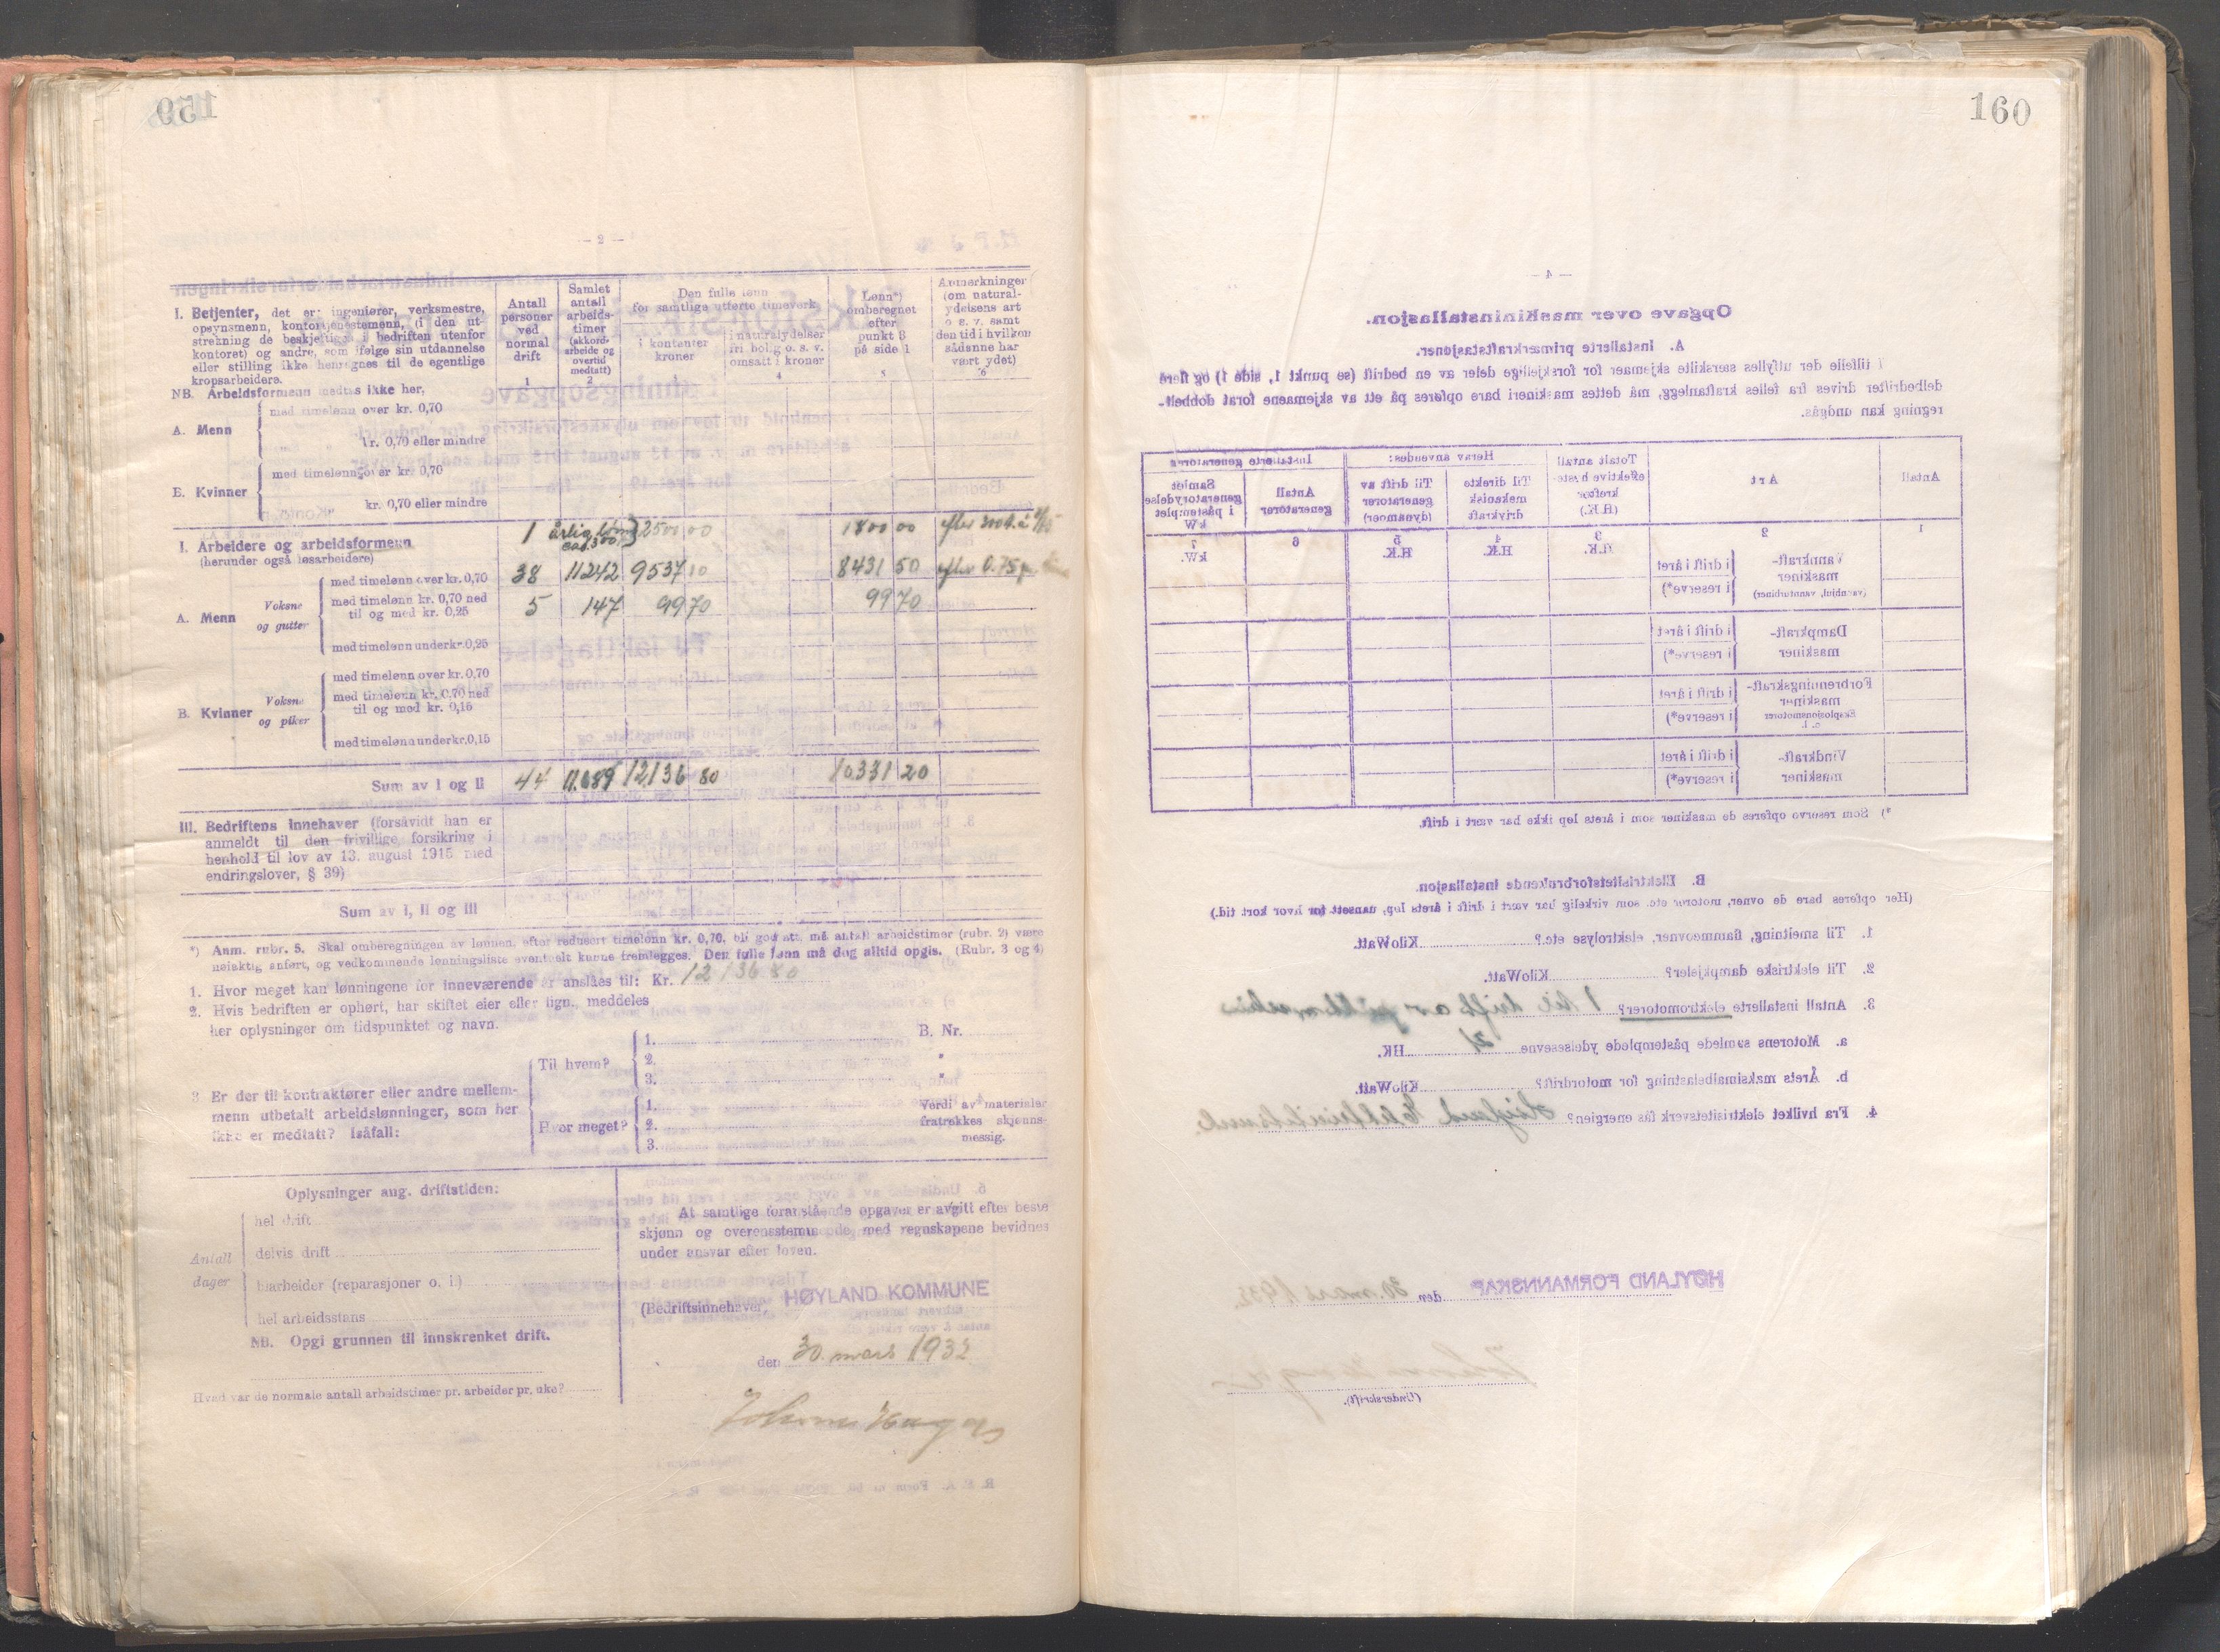 159
— 2 —
I. Betjenter, det er: ingeniører, verksmestre,
opsynsmenn, kontortjenestemenn, (i den ut-
strekning de beskjeftiges i bedriften utenfor
kontoret) og andre, som ifølge sin utdannelse
eller stilling ikke henregnes til de egentlige
kropsarbeidere.
NB. Arbeidsformenn medtas ikke her.
Antall personer ved normal drift
1
Samlet antall arbeids-timer (akkord-arbeide og overtid medtatt)
2
Den fulle lønn for samtlige utførte timeverk
i kontanter kroner
3
i naturalydelser fri bolig o. s. v. omsatt i kroner
4
Lønn*) omberegnet efter punkt 8 på side 1
5
Anmerkninger (om natural-ydelsens art o. s. v. samt den tid i hvilken sådanne har vært ydet)
6
A. Menn
med timelønn over kr. 0,70
kr. 0,70 eller mindre
B. Kvinner
med timelønn over kr. 0,70
kr. 0,70 eller mindre
I. Arbeidere og arbeidsformenn 1 årlig lønn 2500 00 1800 00 efter
(herunder også løsarbeidere)
A. Menn Voksne og gutter
med timelønn over kr. 0,70 38 11242 9537 10 8431 50 efter 0.75
med timelønn kr. 0,70 ned
til og med kr. 0,25 5 147 99 70 99 70
med timelønn under kr. 0,25
B. Kvinner Voksne og piker
med timelønn over kr. 0,70
med timelønn kr. 0,70 ned
til og med kr. 0,15
med timelønn under kr. 0,15
Sum av I og II 44 11.389 12136 80 10331 20
III. Bedriftens innehaver (forsåvidt han er
anmeldt til den frivillige forsikring i
henhold til lov av 13. august 1915 med
endringslover, § 39)
Sum av I, II og III
*) Anm. rubr. 5. Skal omberegningen av lønnen, efter redusert timelønn kr. 0,70, bli godtatt, må antall arbeidstimer (rubr. 2) være
nøiaktig anført, og vedkommende lønningsliste eventuelt kunne fremlegges. Den fulle lønn må dog alltid opgis. (Rubr. 3 og 4)
1. Hvor meget kan lønningene for inneværende år anslåes til: Kr. 12136 80
2. Hvis bedriften er ophørt, har skiftet eier eller lign., meddeles
her oplysninger om tidspunktet og navn.
3 Er der til kontraktører eller andre mellem-
menn utbetalt arbeidslønninger, som her
ikke er medtatt? Isåfall:
Til hvem?
1. B. Nr.
2. "
3. "
Hvor meget?
1.
2.
3.
Verdi av materialer
fratrekkes skjønns-
messig.
Oplysninger ang. driftstiden:
Antall dager
hel drift
delvis drift
biarbeider (reparasjoner o. l.)
hel arbeidsstans
NB. Opgi grunnen til innskrenket drift.
Hvad var de normale antall arbeidstimer pr. arbeider pr. uke?
At samtlige foranstående opgaver er avgitt efter beste
skjønn og overensstemmende med regnskapene bevidnes
under ansvar efter loven.
(Bedriftsinnehaver) HØYLAND KOMMUNE
den 30. mars 1932
160
— 4 —
Opgave over maskininstallasjon.
A. Installerte primærkraftstasjoner.
I tilfelle der utfylles særskilte skjemaer for forskjellige deler av en bedrift (se punkt 1, side 1) og flere
delbedrifter drives fra felles kraftanlegg, må dettes maskineri bare opføres på ett av skjemaene forat dobbelt-
regning kan undgås.
Antall
1
Art
2
Totalt antall effektive hestekrefter (H.K.)
3
H.K.
Herav anvendes:
Til direkte mekanisk drivkraft
4
H.K.
Til drift av generatorer (dynamoer)
5
H.K.
Installerte generatorer
Antall generatorer
6
Samlet generatorydelse i påstemplet kW
7
kW.
Vannkraft-maskiner (vannhjul, vannturbiner)
i drift i året
i reserve*)
Dampkraft-maskiner
i drift i året
i reserve*)
Forbrenningskraft-maskiner Eksplosjonsmotorer o. l.
i drift i året
i reserve*)
Vindkraft-maskiner
i drift i året
i reserve*)
*) Som reserve opføres de maskiner som i årets løp ikke har vært i drift.
B. Elektrisitetsforbrukende installasjon.
(Her opføres bare de ovner, motorer etc. som virkelig har vært i drift i årets løp, uansett for hvor kort tid.)
1. Til smeltning, flammeovner, elektrolyse etc.? KiloWatt.
2. Til elektriske dampkjeler? KiloWatt.
3. Antall installerte elektromotorer? 1 til drift av
a. Motorens samlede påstemplede ydelsesevne HK.
b. Årets maksimalbelastning for motordrift? KiloWatt.
4. Fra hvilket elektrisitetsverk fås energien? Høyland Elektrisitetsverk.
HØYLAND FORMANNSKAP den 30. mars 1932.
(Underskrift).